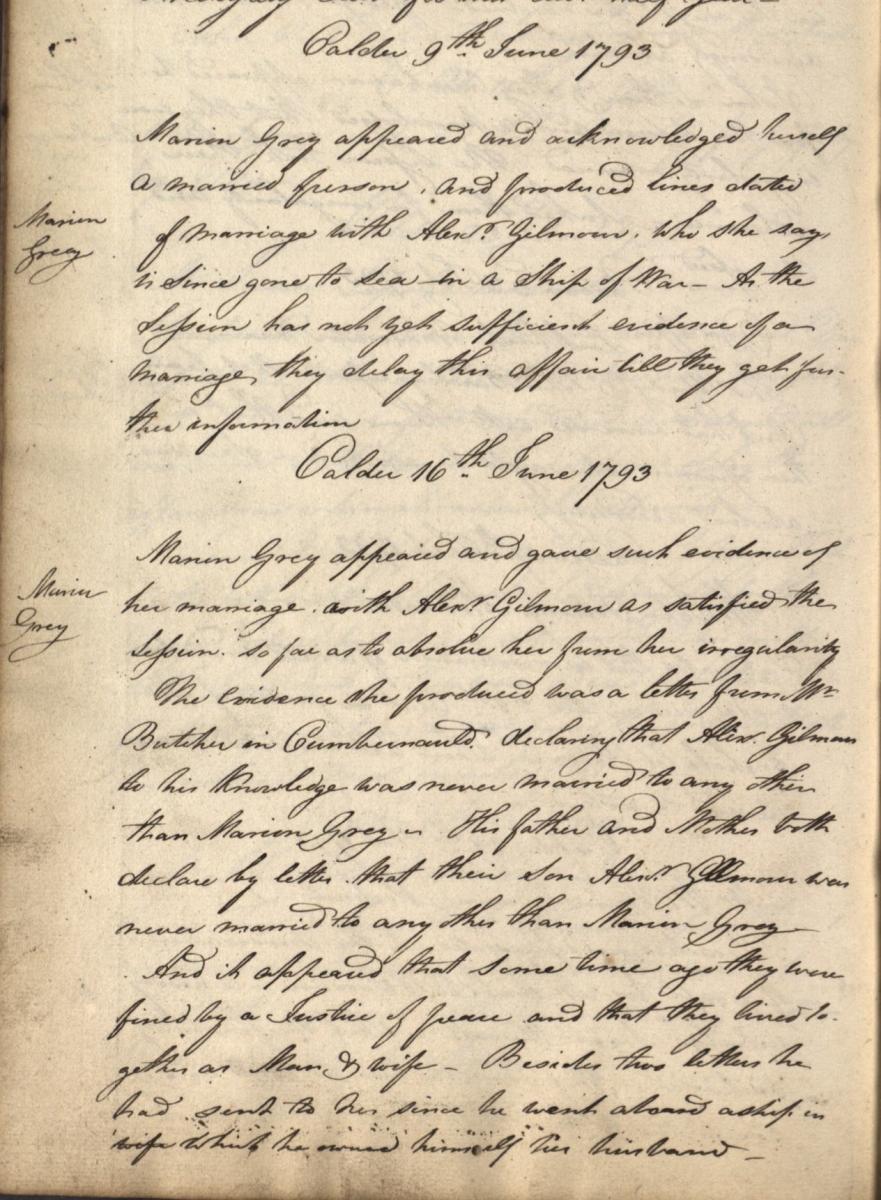 Calder 9th June 1793
Marion Grey appeared and acknowledged herself
a married person, and produced lines dated
Marion
Grey
of marriage with Alexr. Gilmour, who she says
is since gone to sea in a Ship of War - As the
Session has not yet sufficient evidence of a
marriage, they delay this affair till they get fur-
ther information
Calder 16th June 1793
Marion Grey appeared and gave such evidence of
Marion
Grey
her marriage with Alexr Gilmour as satisfied the
Session. so far as to absolve her from her irregularity
The evidence she produced was a letter from Mr
Butcher in Cumbernauld. declaring that Alexr. Gilmour
to his knowledge was never married to any other
than Marion Grey - His father and Mother both
declare by letter that their son Alexr. Gillmour was
never married to any other than Marion Grey
And it appeared that some time ago they were
fined by a Justice of peace and that they lived to-
gether as Man & wife - Besides two letters he
had sent to her since he went aboard a ship in
which he owned himself her husband -